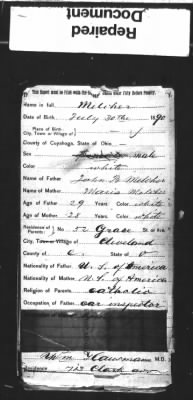 Repaired
Document
This Report must be Filed with the
Name in full, Melcher
Date of Birth, July 30th 1890
Place of Birth-
City, Town or Village of
County of Cuyahoga, State of Ohio.
Sex male
Color white
Name of Father John B Melcher
Name of Mother Maria Melcher
Age of Father 29 Years. Color white
Age of Mother 28 Years. Color white
Residence of Parents: No 52 Grace St. or Ave.
City, Town or Village of Cleveland
County of C. State of O
Nationality of Father U. S. of America
Nationality of Mother U. S. of America
Religion of Parents. catholic
Occupation of Father car inspector
Wm M.D.
Residence 713 Clark ave